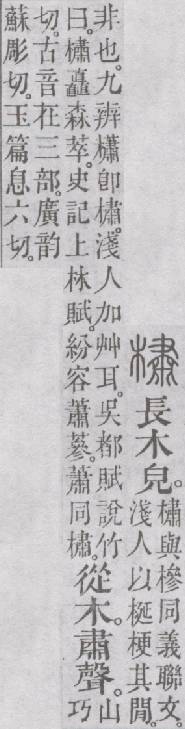 橚長木皃。橚與槮同義聯文。
淺人以梴梗其閒。
非也。九辨櫹卽橚。淺人加艸耳。吳都賦說竹
曰。橚矗森萃。史記上林賦。紛容蕭蔘。蕭同橚。從木。肅聲。山
巧
切。古音在三部。廣韵
蘇彫切。玉篇息六切。